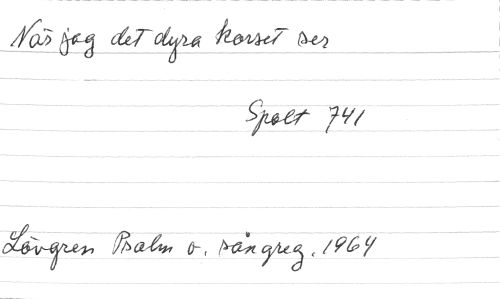 När jag det dyra korset ser
Spalt 741
Lövgren Psalm o. sångreg. 1964